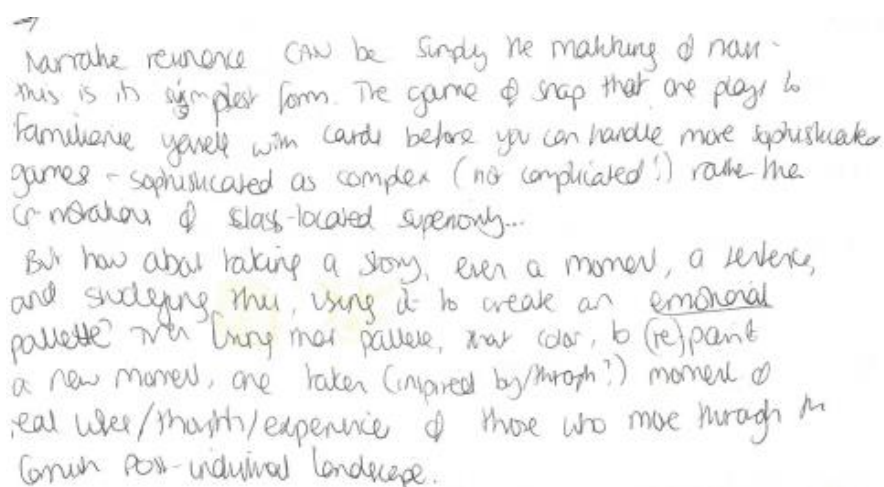 Narrative resonance CAN be simply the matching of nouns -
this is its simplest form. The game of snap that one plays to
familiarise yourself with cards before you can handle more sophisticated
games - sophisticated as complex (not complicated!) rather the
connotations of class-located superiority...
But how about taking a story, even a moment, a sentence,
and studying this, using it to create an emotional
pallette? Then using that pallette, that color, to (re)paint
a new moment, one taken (inspired by/through?) moment of
real /thoughts/experience of those who move through the
Cornish post-industrial landscape.